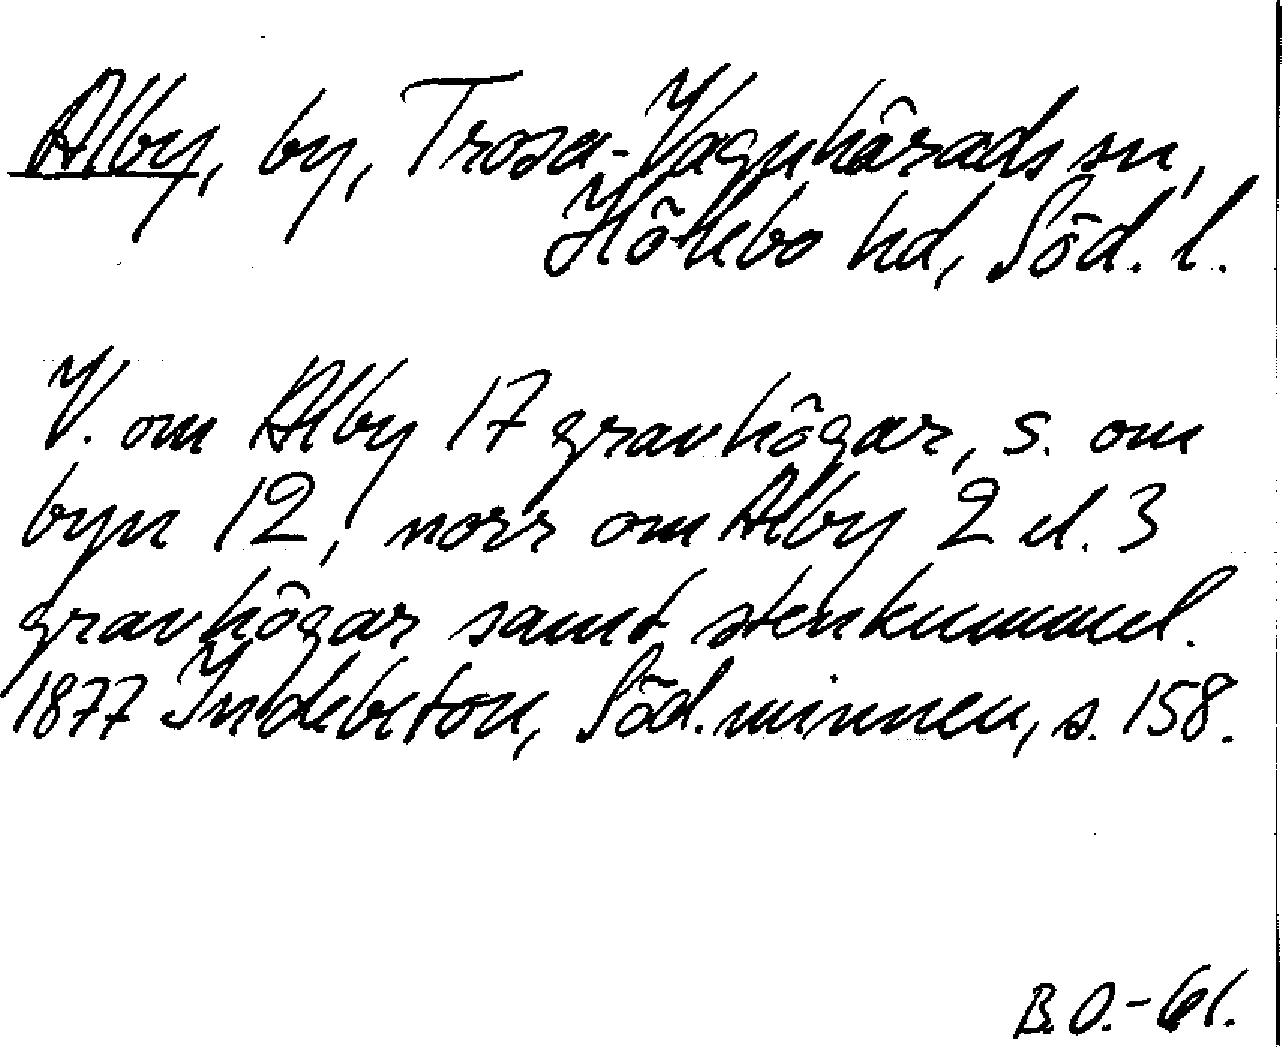 Alby, by, Trosa-Vagnhärads sn,
Hölebo hd, Söd. l.
V. om Alby 17 gravhögar, s. om
byn 12, norr om Alby 2 el. 3
gravhögar samt stenkummel.
1877 Indebetou, Söd. minnen, s. 158.
B.O.-61.